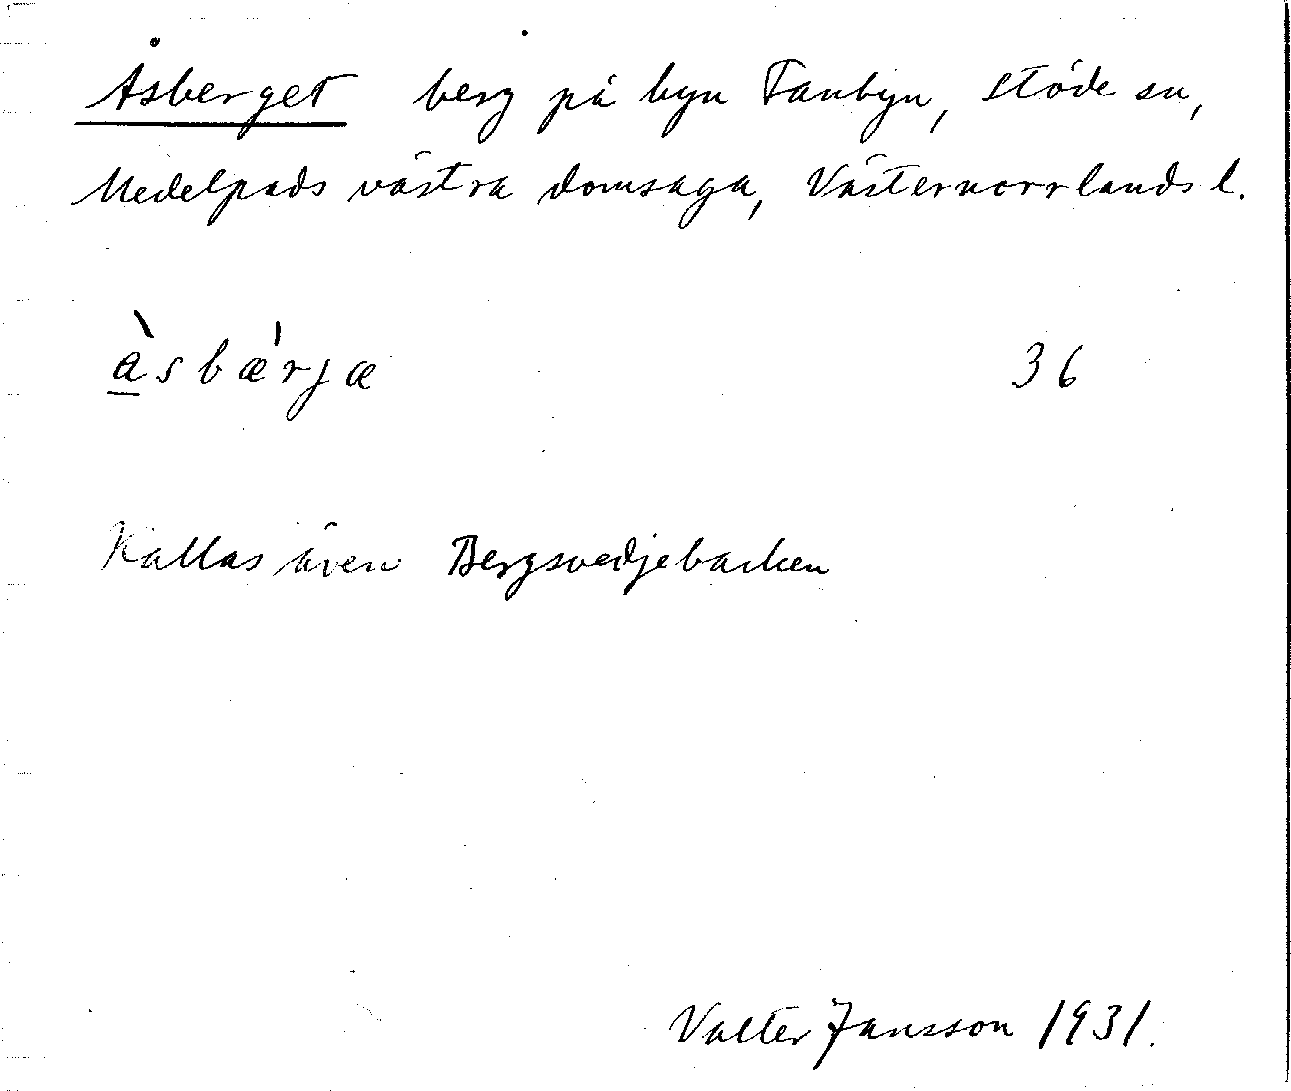 Åsberget berg på byn Fanbyn, Stöde sn,
Medelpads västra domsaga, Västernorrlands l.
à̲sbæ̍rjæ 36
Kallas även Bergsvedjebacken
Valter Jansson 1931.